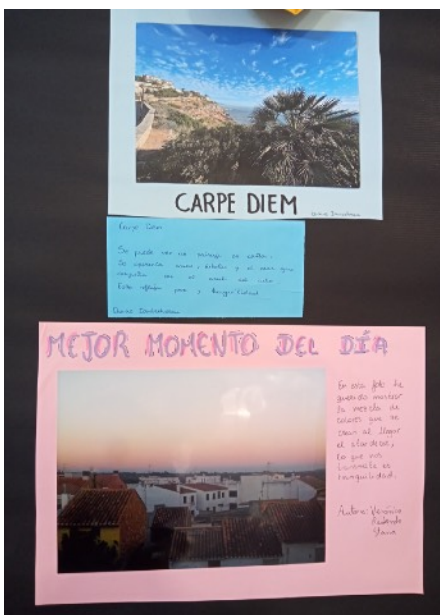 CARPE DIEM
Carpe Diem
Se puede ver un paisaje de
Se aprecia árboles y el mar que
con el azul del cielo
Esto refleja paz y tranquilidad
MEJOR MOMENTO DEL DÍA
En esta foto he
querido mostrar
la mezcla de
colores que se
crean al llegar
el atardecer,
lo que nos
transmite es
tranquilidad.
Autora: Verónica